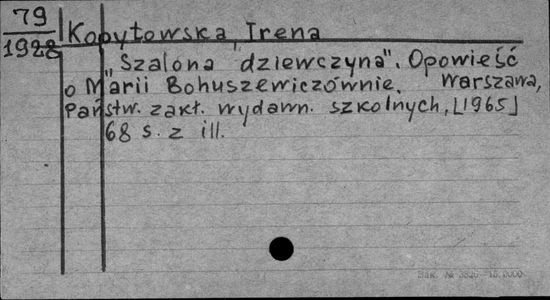 79
1928
Kopytowska Irena
"Szalona dziewczyna". Opowieść
o Marii Bohuszewiczównie. Warszawa,
Państw. zakł. wydawn. szkolnych, [1965]
68 s. z ill.